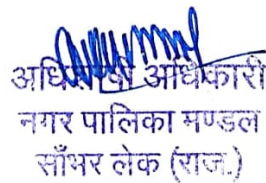 अधिशाषी अधिकारी
नगर पालिका मण्डल
साँभर लेक (राज.)